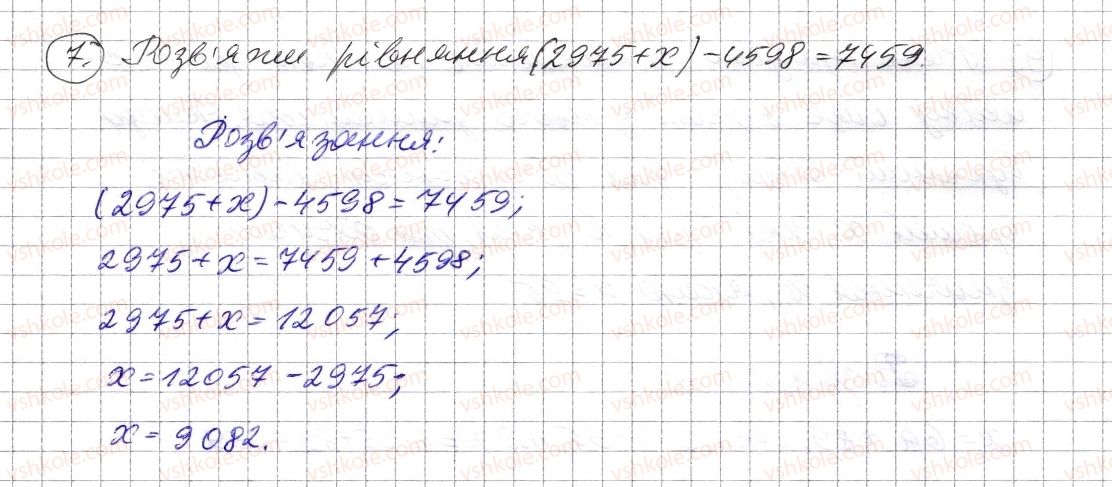 7. Розв'яжи рівняння (2975+x)-4598=7459.
Розв'язання:
(2975+x)-4598=7459;
2975+x=7459+4598;
2975+x=12057;
x=12057-2975;
x=9082.